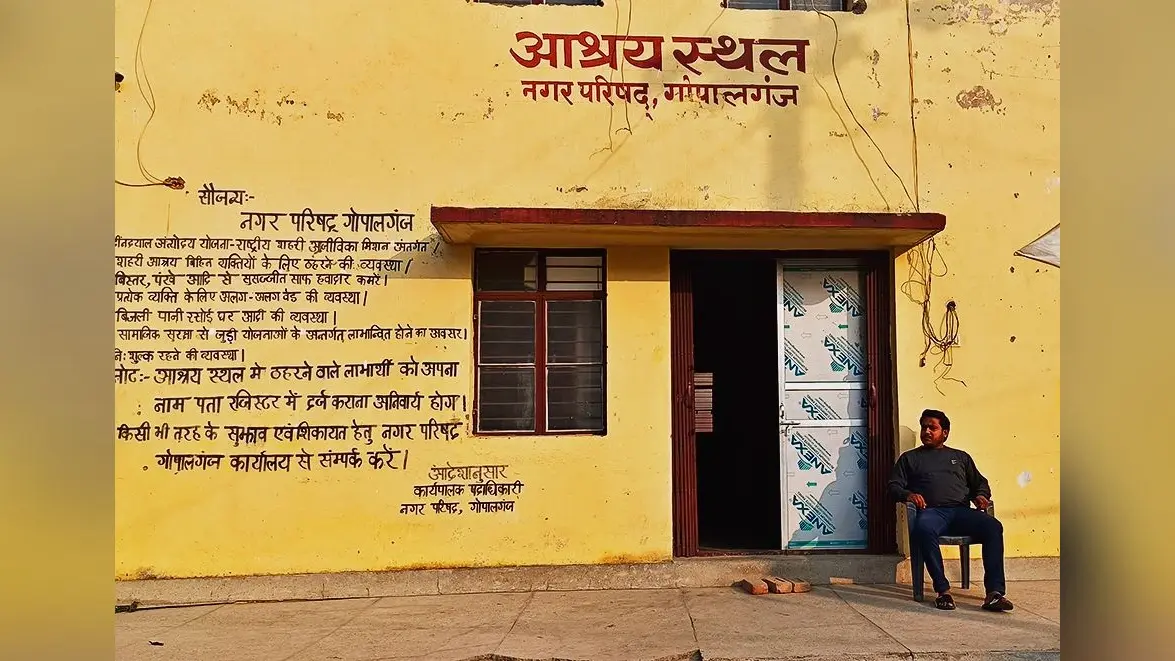 आश्रय स्थल
नगर परिषद, गोपालगंज
सौजन्यः-
नगर परिषद् गोपालगंज
दीनदयाल अंत्योदय योजना-राष्ट्रीय शहरी आजीविका मिशन अंतर्गत।
शहरी आश्रय विहिन व्यक्तियों के लिए ठहरने की व्यवस्था।
बिस्तर, पंखे आदि से सुसज्जीत साफ हवादार कमरें।
प्रत्येक व्यक्ति के लिए अलग-अलग वेड की व्यवस्था।
बिजली पानी रसोई घर आदी की व्यवस्था।
सामाजिक सुरक्षा से जुड़ी योजनाओं के अन्तर्गत लाभान्वित होने का अवसर।
निःशुल्क रहने की व्यवस्था।
नोटः- आश्रय स्थल मे ठहरने वाले लाभार्थी को अपना
नाम पता रजिस्टर में दर्ज कराना अनिवार्य होगा।
किसी भी तरह के सुझाव एवं शिकायत हेतु नगर परिषद्
गोपालगंज कार्यालय से संम्पर्क करें।
आदेशानुसार
कार्यपालक पदाधिकारी
नगर परिषद्, गोपालगंज
ANEXA
ANEXA
ANEXA
ANEXA
ANEXA